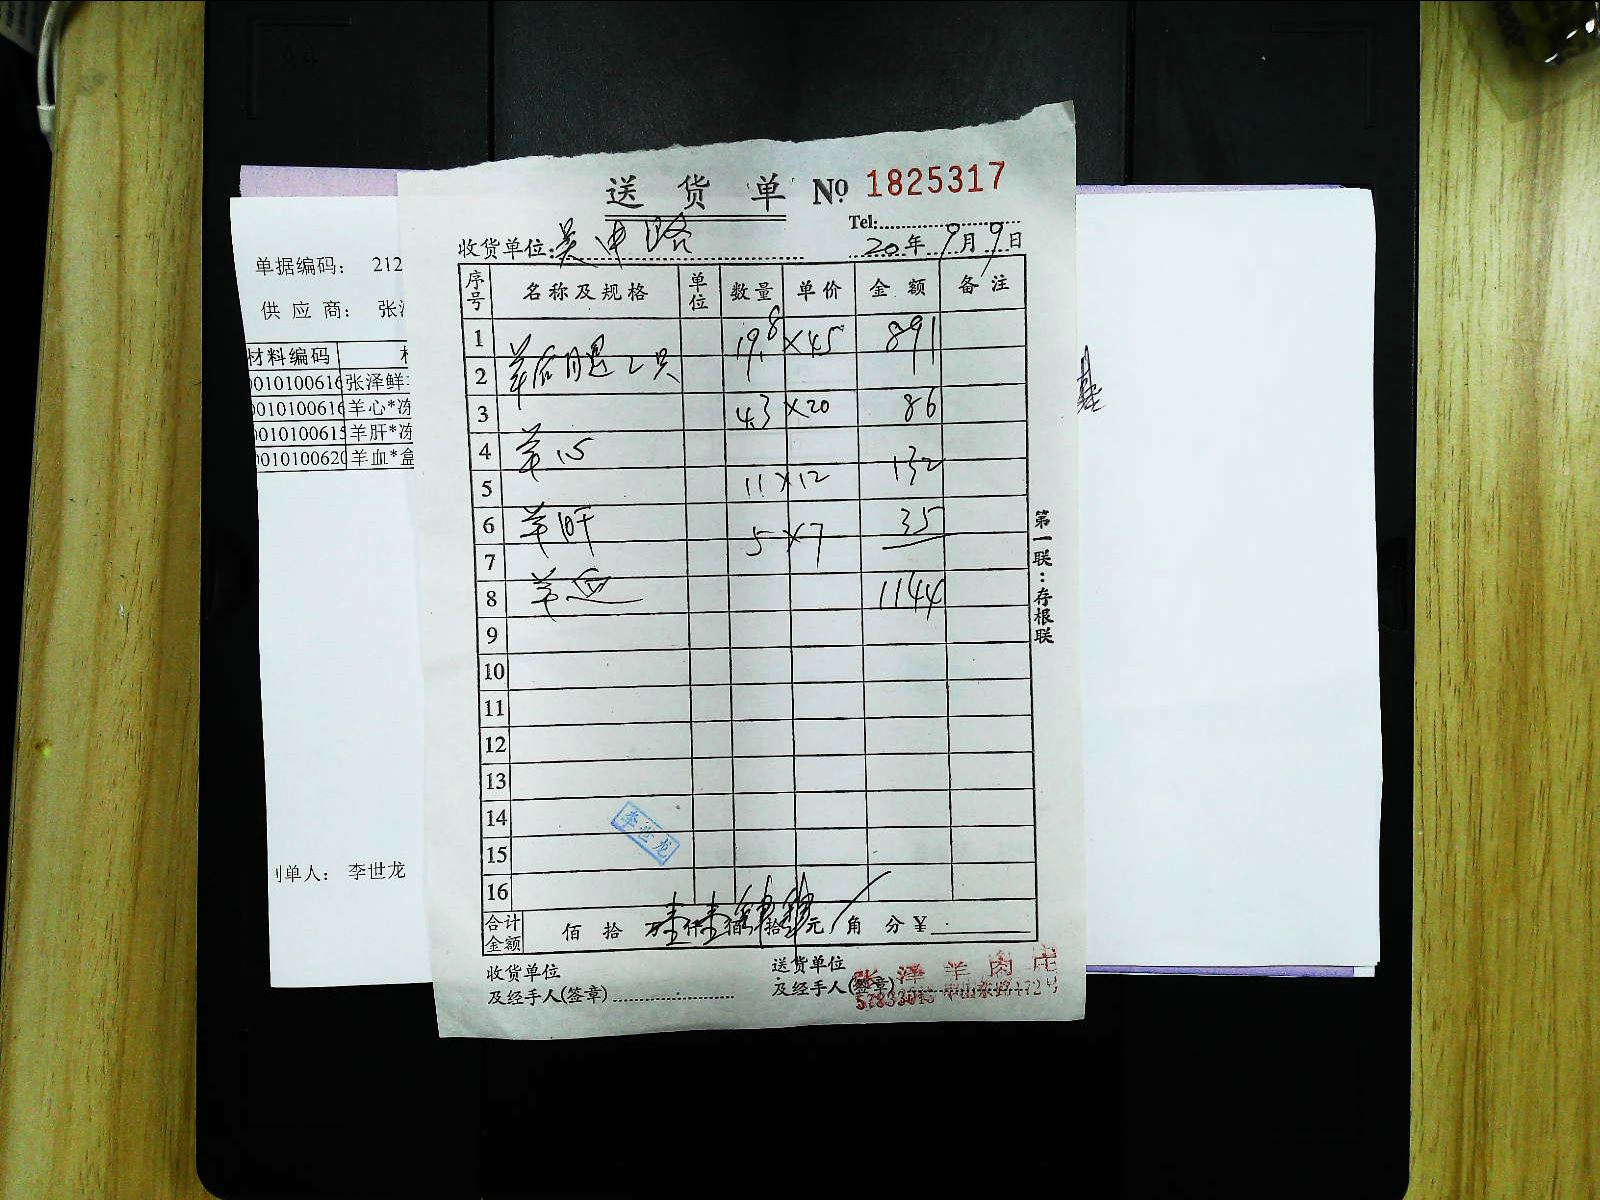 送货单 № 1825317
Tel:
收货单位: 吴中路 20年9月9日
序号 名称及规格 单位 数量 单价 金额 备注
1 19.8 ×45 891
2 羊后腿2只
3 4.3 ×20 86
4 羊心
5 11 ×12 132
6 羊肝 35
7 5 ×7
8 羊血 1144
9
10
11
12
13
14
15
16
李世龙
合计金额 佰 拾 万壹仟壹佰肆拾肆元 角 分 ¥
收货单位
及经手人(签章)
送货单位
及经手人(签章)
张泽羊肉庄
第一联：存根联
单据编码： 212
供应商： 张
材料编码
0010100616 张泽鲜
0010100616 羊心*冻
0010100615 羊肝*冻
0010100620 羊血*盒
制单人： 李世龙